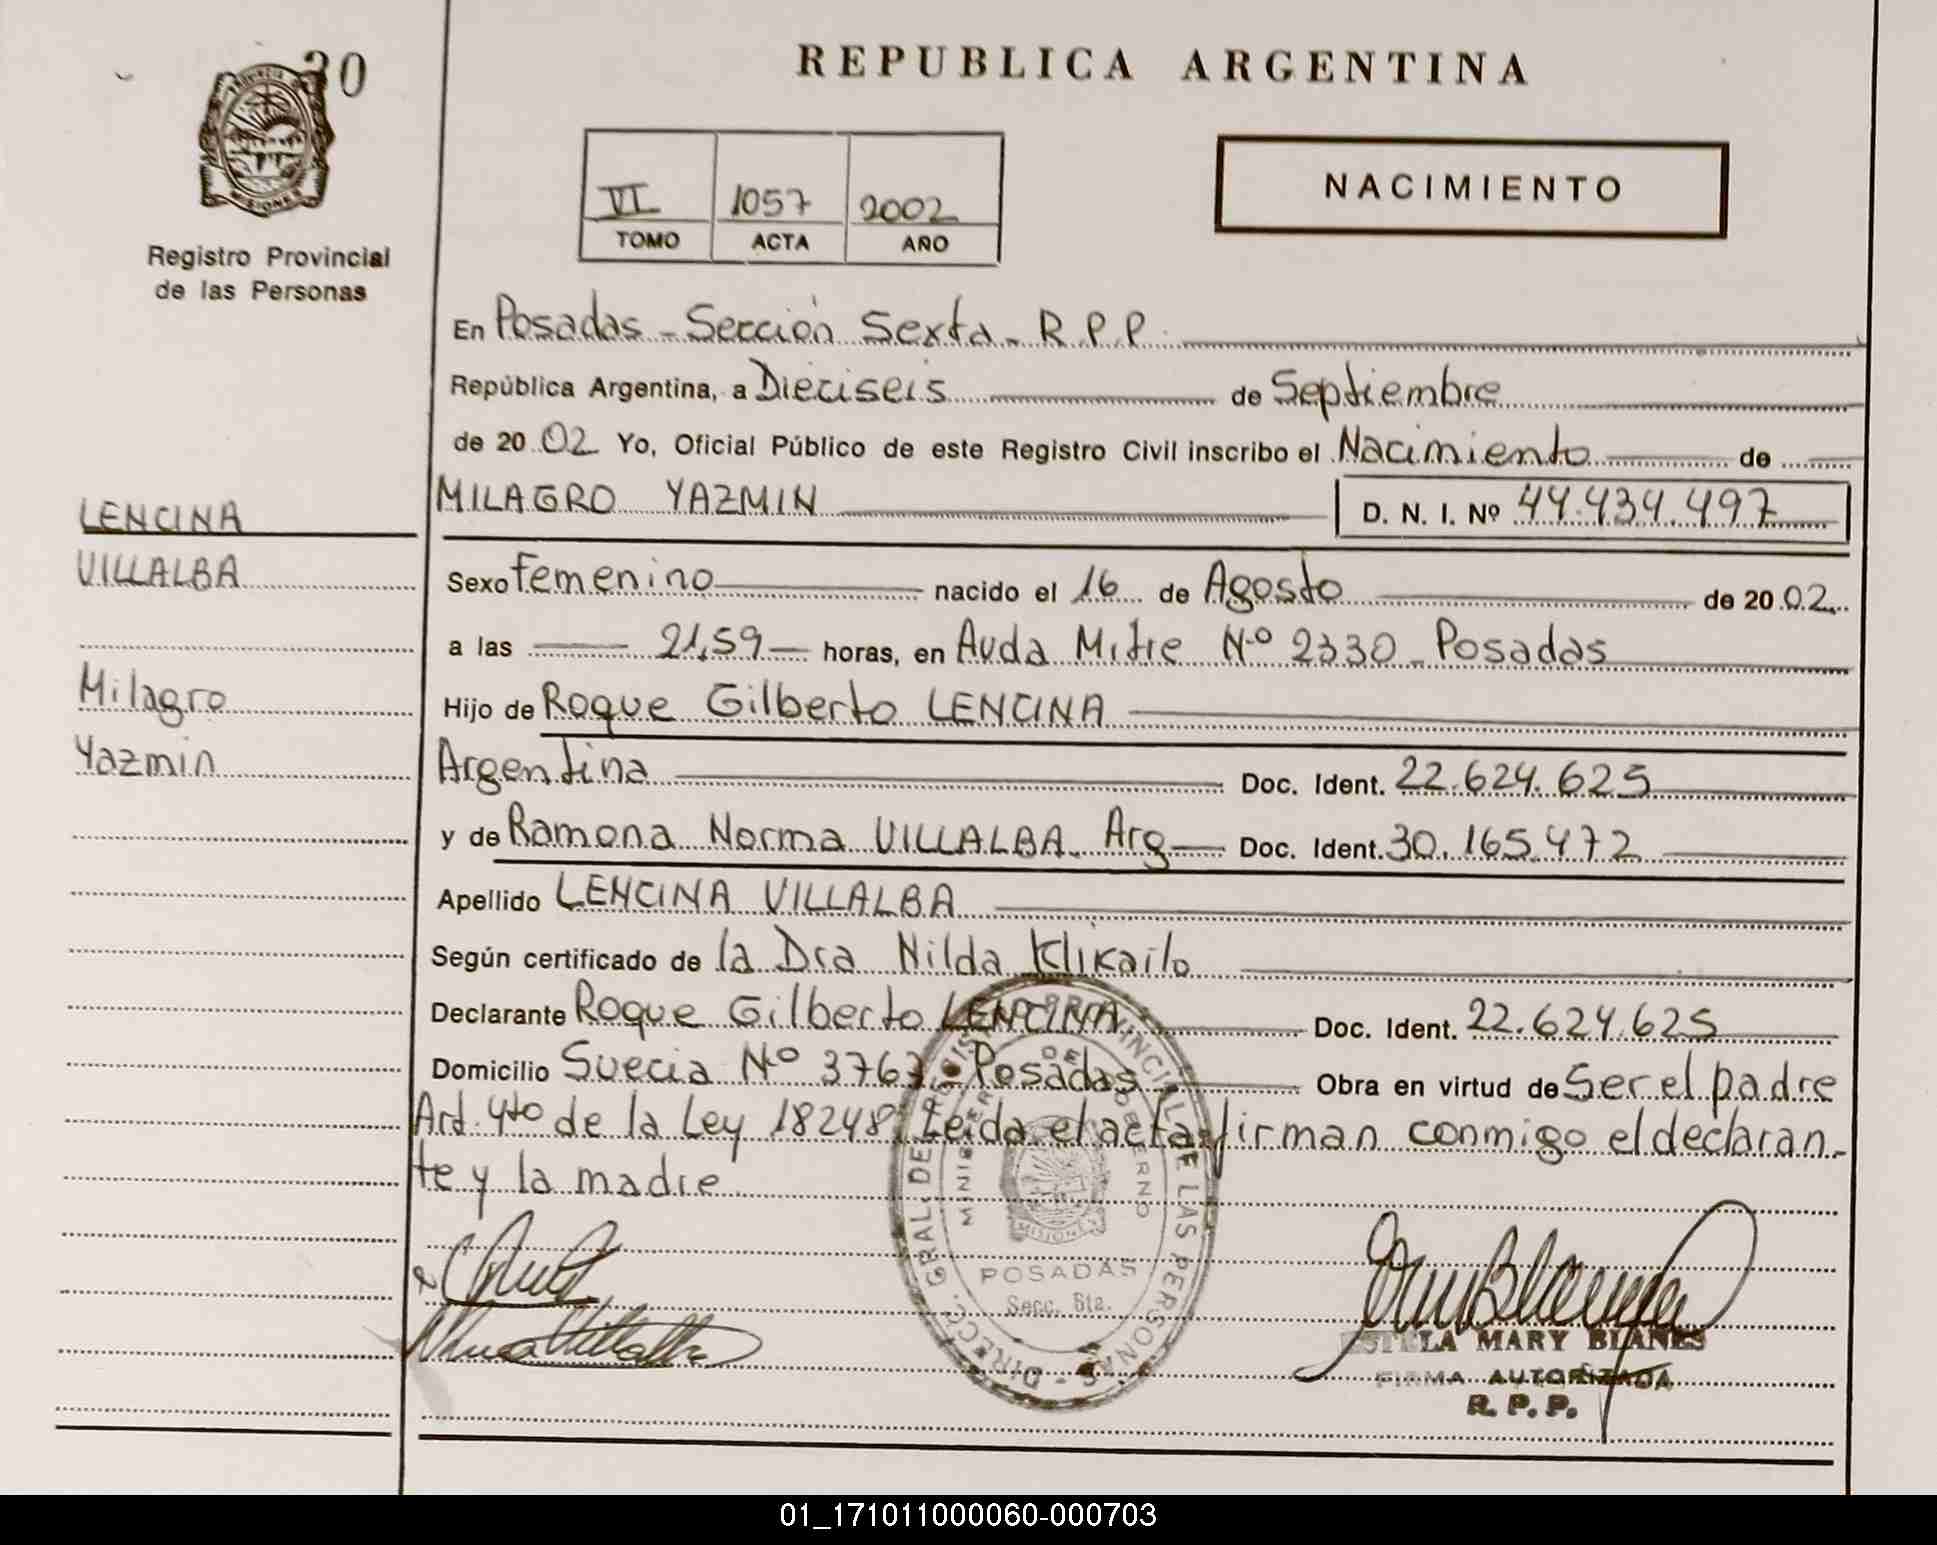 30
REPUBLICA ARGENTINA
PROVINCIA
MISIONES
Registro Provincial
de las Personas
VI 1057 2002
TOMO ACTA AÑO
NACIMIENTO
En Posadas - Sección Sexta - R.P.P.
República Argentina, a Dieciseis de Septiembre
de 2002 Yo, Oficial Público de este Registro Civil inscribo el Nacimiento de
LENCINA
MILAGRO YAZMIN D. N. I. Nº 44.434.497
VILLALBA
Sexo Femenino nacido el 16 de Agosto de 2002
a las 21,59 horas, en Avda Mitre Nº 2330 - Posadas
Milagro
Hijo de Roque Gilberto LENCINA
Yazmin
Argentina Doc. Ident. 22.624.625
y de Ramona Norma VILLALBA. Arg Doc. Ident. 30.165.472
Apellido LENCINA VILLALBA
Según certificado de la Dra Nilda Klikailo
Declarante Roque Gilberto LENCINA Doc. Ident. 22.624.625
Domicilio Suecia Nº 3767 - Posadas Obra en virtud de Ser el padre
Art. 4to de la Ley 18248. Leida el acta firman conmigo el declaran-
te y la madre
DIRECC. GRAL. DE REGISTRO PROVINCIAL DE LAS PERSONAS
MINISTERIO DE GOBIERNO
MISIONES
POSADAS
Secc. 6ta.
ESTELA MARY BLANES
FIRMA AUTORIZADA
R. P. P.
01_171011000060-000703